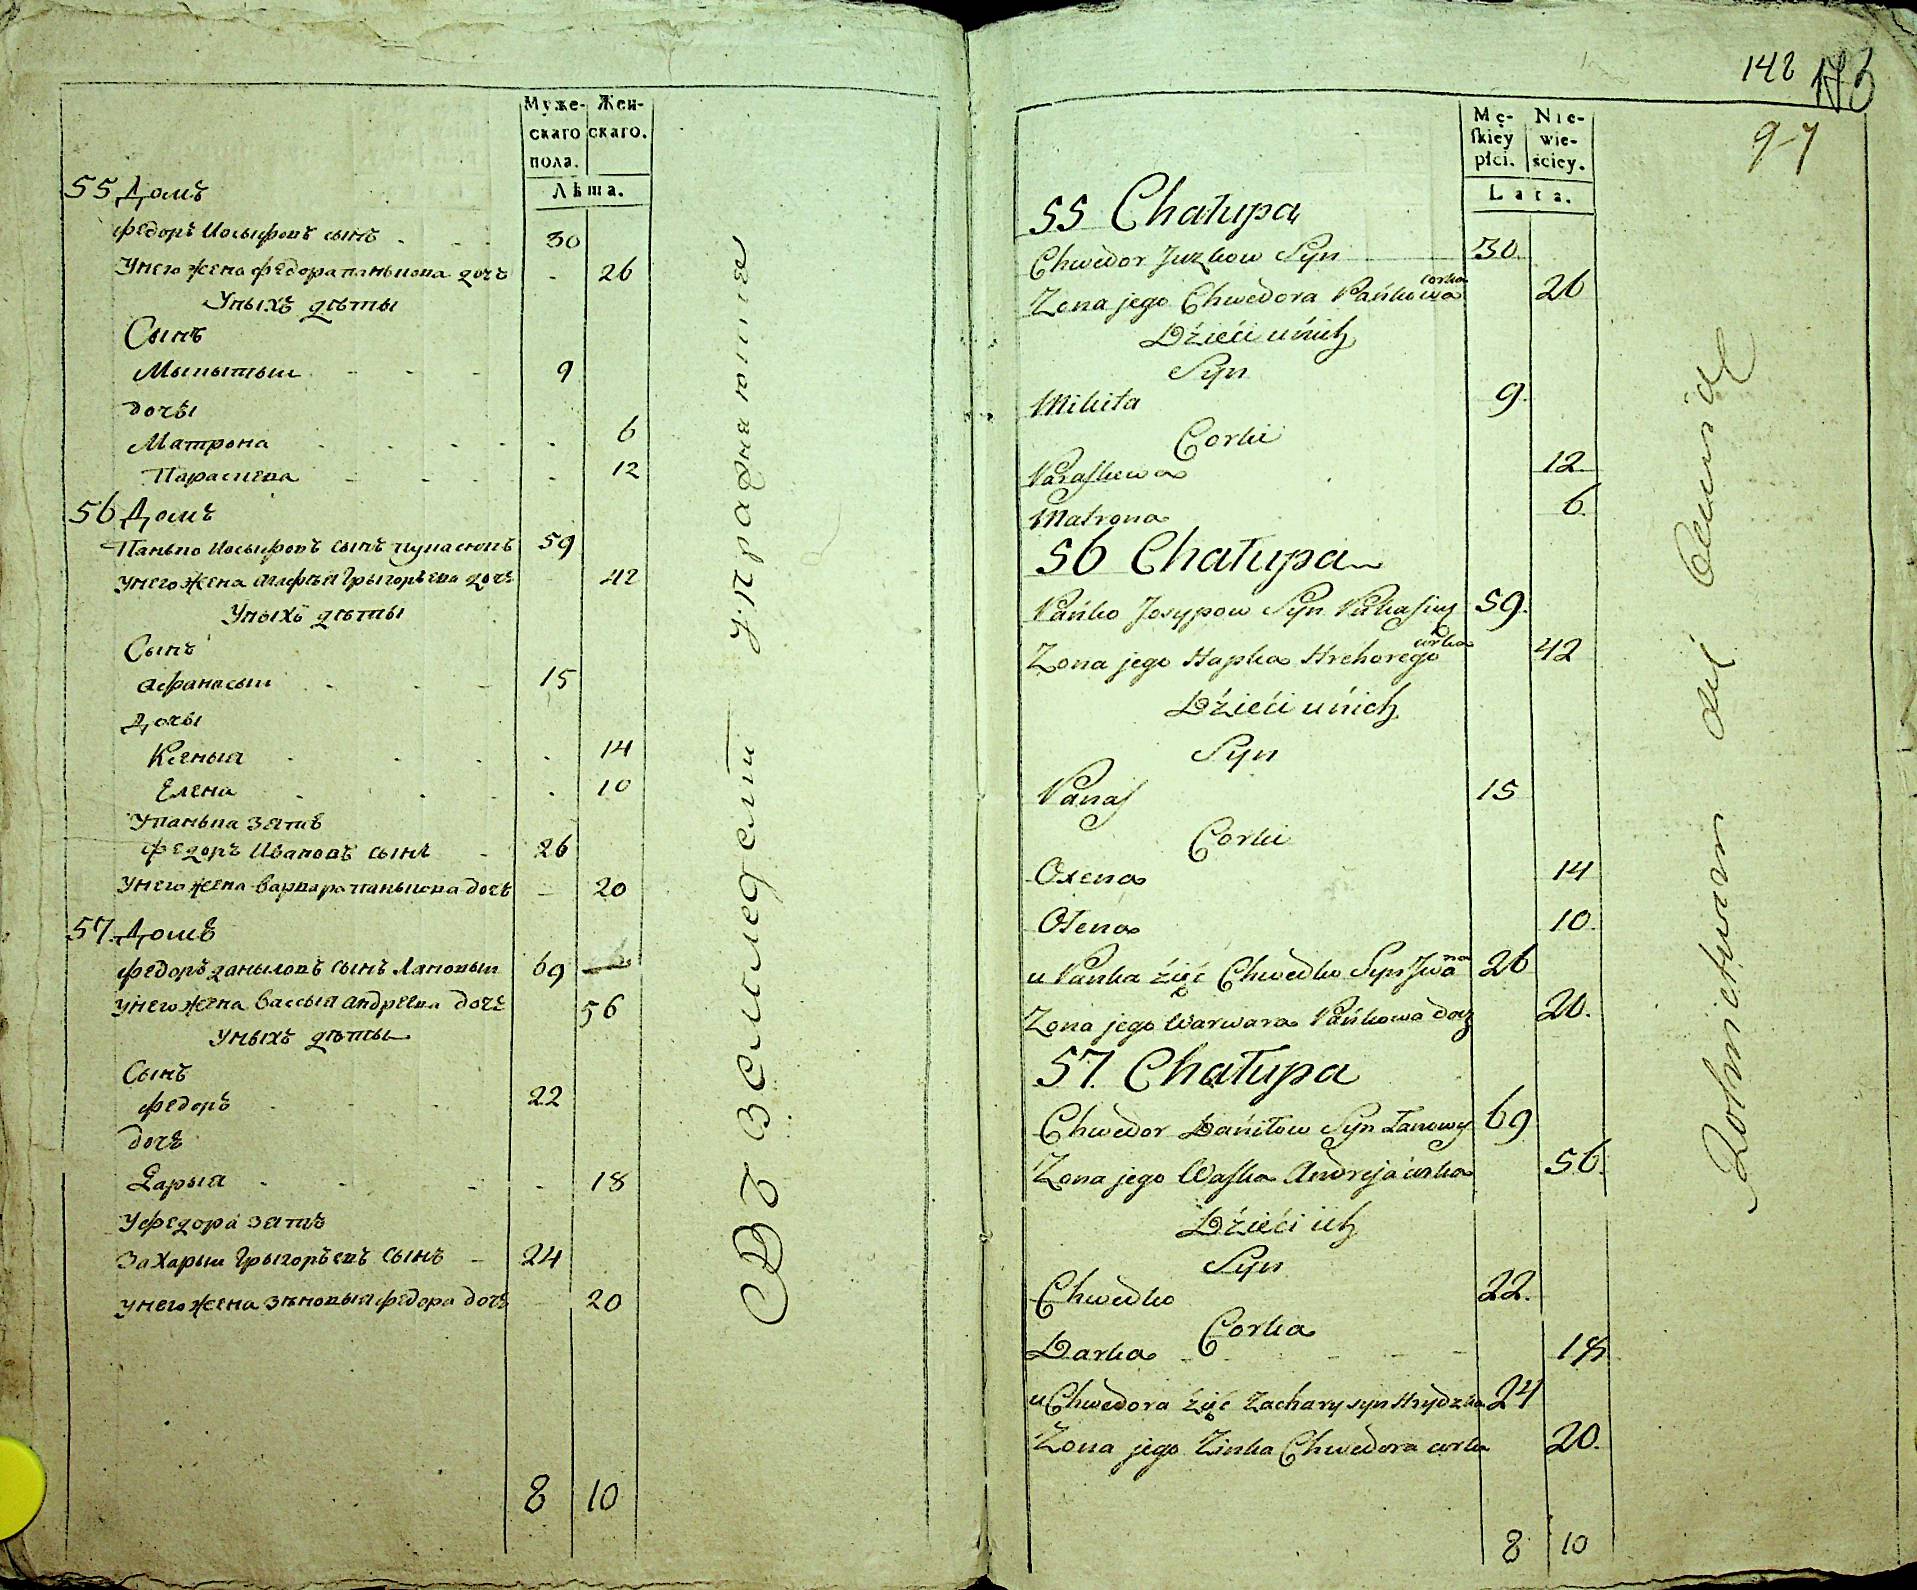 Муже-
скаго
пола.
Жен-
скаго.
Лѣта.
55 Домъ
Федоръ Иосыфовъ сынъ 30
Унего жена Федора панькова дочь 26
Уныхъ дѣты
Сынъ
Мыкытый 9
дочѣи
Матрона 6
Параскева 12
56 Домъ
Панько Иосыфовъ сынъ 59
унего жена Агафыя Грыгорьева дочь 42
Уныхъ дѣты
Сынъ
Афанасый 15
Дочѣи
Ксеныя 14
Елена 10
Упанька зять
Федоръ Ивановъ сынъ 26
Унего жена Варвара панькова дочь 20
57 Домъ
Федоръ даныловъ сынъ Лановый 69
унего жена Вассыя андреева дочь 56
Уныхъ дѣты
Сынъ
Федоръ 22
дочь
Дарыя 18
Уфедора зять
Захарый Грыгорьевъ сынъ 24
унего жена Зѣновыя федора дочь 20
8 10
Въ земледелии упражняются
142
9-7
Mę-
skiey
płci.
Nie-
wie-
ściey.
Lata.
55 Chałupa
Chwedor Juzkow Syn 30.
Zona jego Chwedora Pańkowa corka 26
Dźieći uńich
Syn
Mikita 9.
Corki
Paraskewa 12
Matrona 6.
56 Chałupa
Pańko Josypow Syn 59.
Zona jego Hapka Hrehorego corka 42
Dźieći uńich
Syn
Panas 15
Corki
Oxena 14
Ołena 10.
u Pańka źięć Chwedko Syn Jwana 26
Zona jego Warwara Pańkowa docz 20.
57. Chałupa
Chwedor Daniłow Syn Łanowy 69
Zona jego Waska Andreja corka 56.
Dźieći ich
Syn
Chwedko 22.
Corka
Darka 18
u Chwedora źięć Zachary syn Hrydzka 24
Zona jego Zinka Chwedora corka 20.
8 10
Rolnictwem